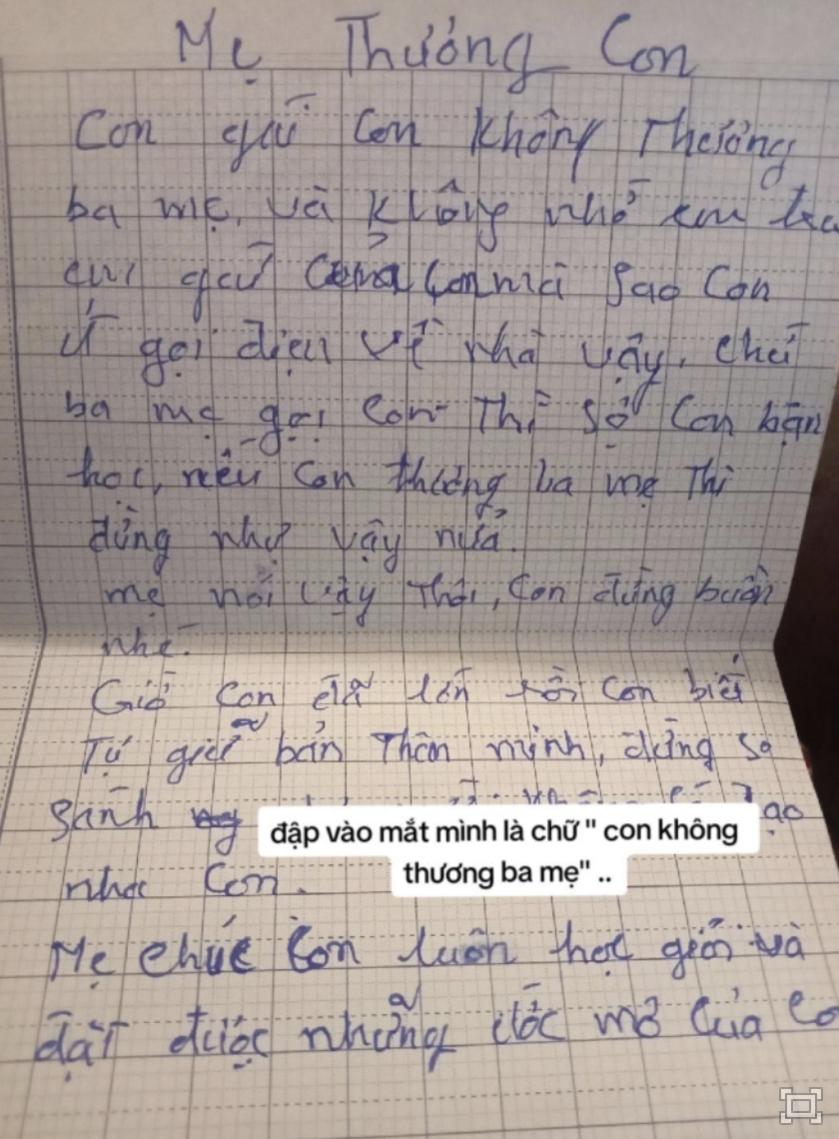 Mẹ Thương Con
Con gái Con không Thương
ba mẹ, và không nhớ em
em gái Của Con mà Sao Con
ít gọi điện về nhà vậy, chứ
ba mẹ gọi Con Thì Sợ Con bận
học, nếu Con thương ba mẹ Thì
đừng như vậy nữa.
mẹ nói vậy Thôi, Con đừng buồn
nhé.
Giờ Con đã lớn rồi Con biết
Tự giữ bản Thân mình, đừng so
Sánh
đập vào mắt mình là chữ " con không
thương ba mẹ" ..
nha Con.
Mẹ chúc Con luôn học giỏi và
đạt được những ước mơ Của